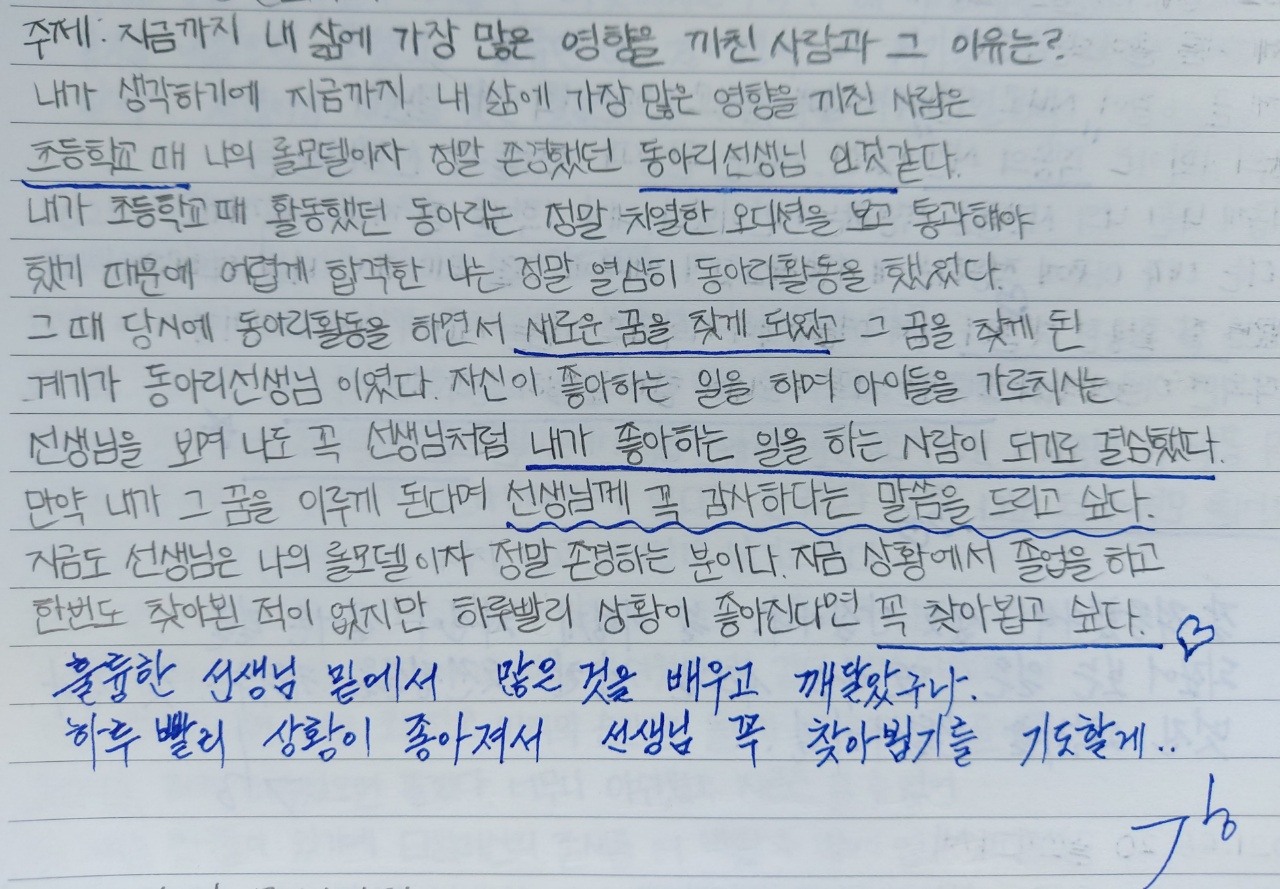 주제: 지금까지 내 삶에 가장 많은 영향을 끼친 사람과 그 이유는?
내가 생각하기에 지금까지 내 삶에 가장 많은 영향을 끼친 사람은
초등학교 때 나의 롤모델이자 정말 존경했던 동아리선생님 인것같다.
내가 초등학교때 활동했던 동아리는 정말 치열한 오디션을 보고 통과해야
했기 때문에 어렵게 합격한 나는 정말 열심히 동아리활동을 했었다.
그 때 당시에 동아리활동을 하면서 새로운 꿈을 찾게 되었고 그 꿈을 찾게 된
계기가 동아리선생님 이였다. 자신이 좋아하는 일을 하며 아이들을 가르치시는
선생님을 보며 나도 꼭 선생님처럼 내가 좋아하는 일을 하는 사람이 되기로 결심했다.
만약 내가 그 꿈을 이루게 된다며 선생님께 꼭 감사하다는 말씀을 드리고 싶다.
지금도 선생님은 나의 롤모델이자 정말 존경하는 분이다. 지금 상황에서 졸업을 하고
한번도 찾아뵌 적이 없지만 하루빨리 상황이 좋아진다면 꼭 찾아뵙고 싶다.
훌륭한 선생님 밑에서 많은 것을 배우고 깨달았구나.
하루 빨리 상황이 좋아져서 선생님 꼭 찾아뵙기를 기도할게..